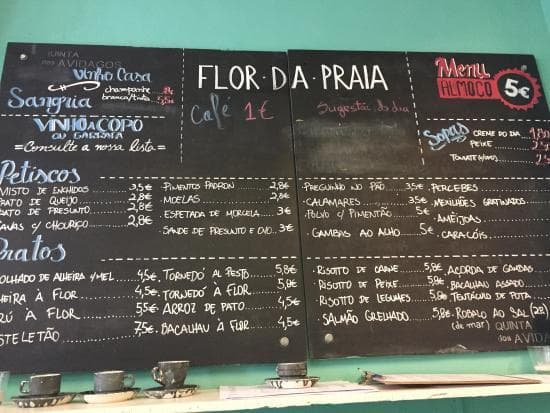 QUINTA
dos AVIDAGOS
Vinho Casa
champanhe
Sangria branca/tinta 5,5€
VINHO A COPO
OU GARRAFA
=Consulte a nossa lista=
FLOR.DA.PRAIA
Café 1€
Sugestão do dia
Menu
ALMOÇO 5€
Sopas
CREME DO DIA
PEIXE
TOMATE
Petiscos
MISTO DE ENCHIDOS 3,5€
PRATO DE QUEIJO 2,8€
PRATO DE PRESUNTO 2,8€
FAVAS C/ CHOURIÇO 2,8€
PIMENTOS PADRON 2,8€
MOELAS 2,8€
ESPETADA DE MORCELA 3€
SANDE DE PRESUNTO E OVO 3€
PREGUINHO NO PÃO 3,5€
CALAMARES 3,5€
POLVO C/ PIMENTÃO 5€
GAMBAS AO ALHO 5€
PERCEBES
MEXILHÕES GRATINADOS
AMÊIJOAS
CARACÓIS
Pratos
FOLHADO DE ALHEIRA C/MEL 4,5€
ALHEIRA À FLOR 4,5€
PERÚ À FLOR 5,5€
COSTELETÃO 7,5€
TORNEDÓ AL PESTO 5,8€
TORNEDÓ À FLOR 5,8€
ARROZ DE PATO 4,5€
BACALHAU À FLOR 4,5€
RISOTTO DE CARNE 5,8€
RISOTTO DE PEIXE 5,8€
RISOTTO DE LEGUMES 5,8€
SALMÃO GRELHADO 5,8€
AÇORDA DE GAMBAS
BACALHAU ASSADO
TENTÁCULO DE POTA
ROBALO AO SAL (2P)
(de mar) QUINTA
dos AVIDAGOS